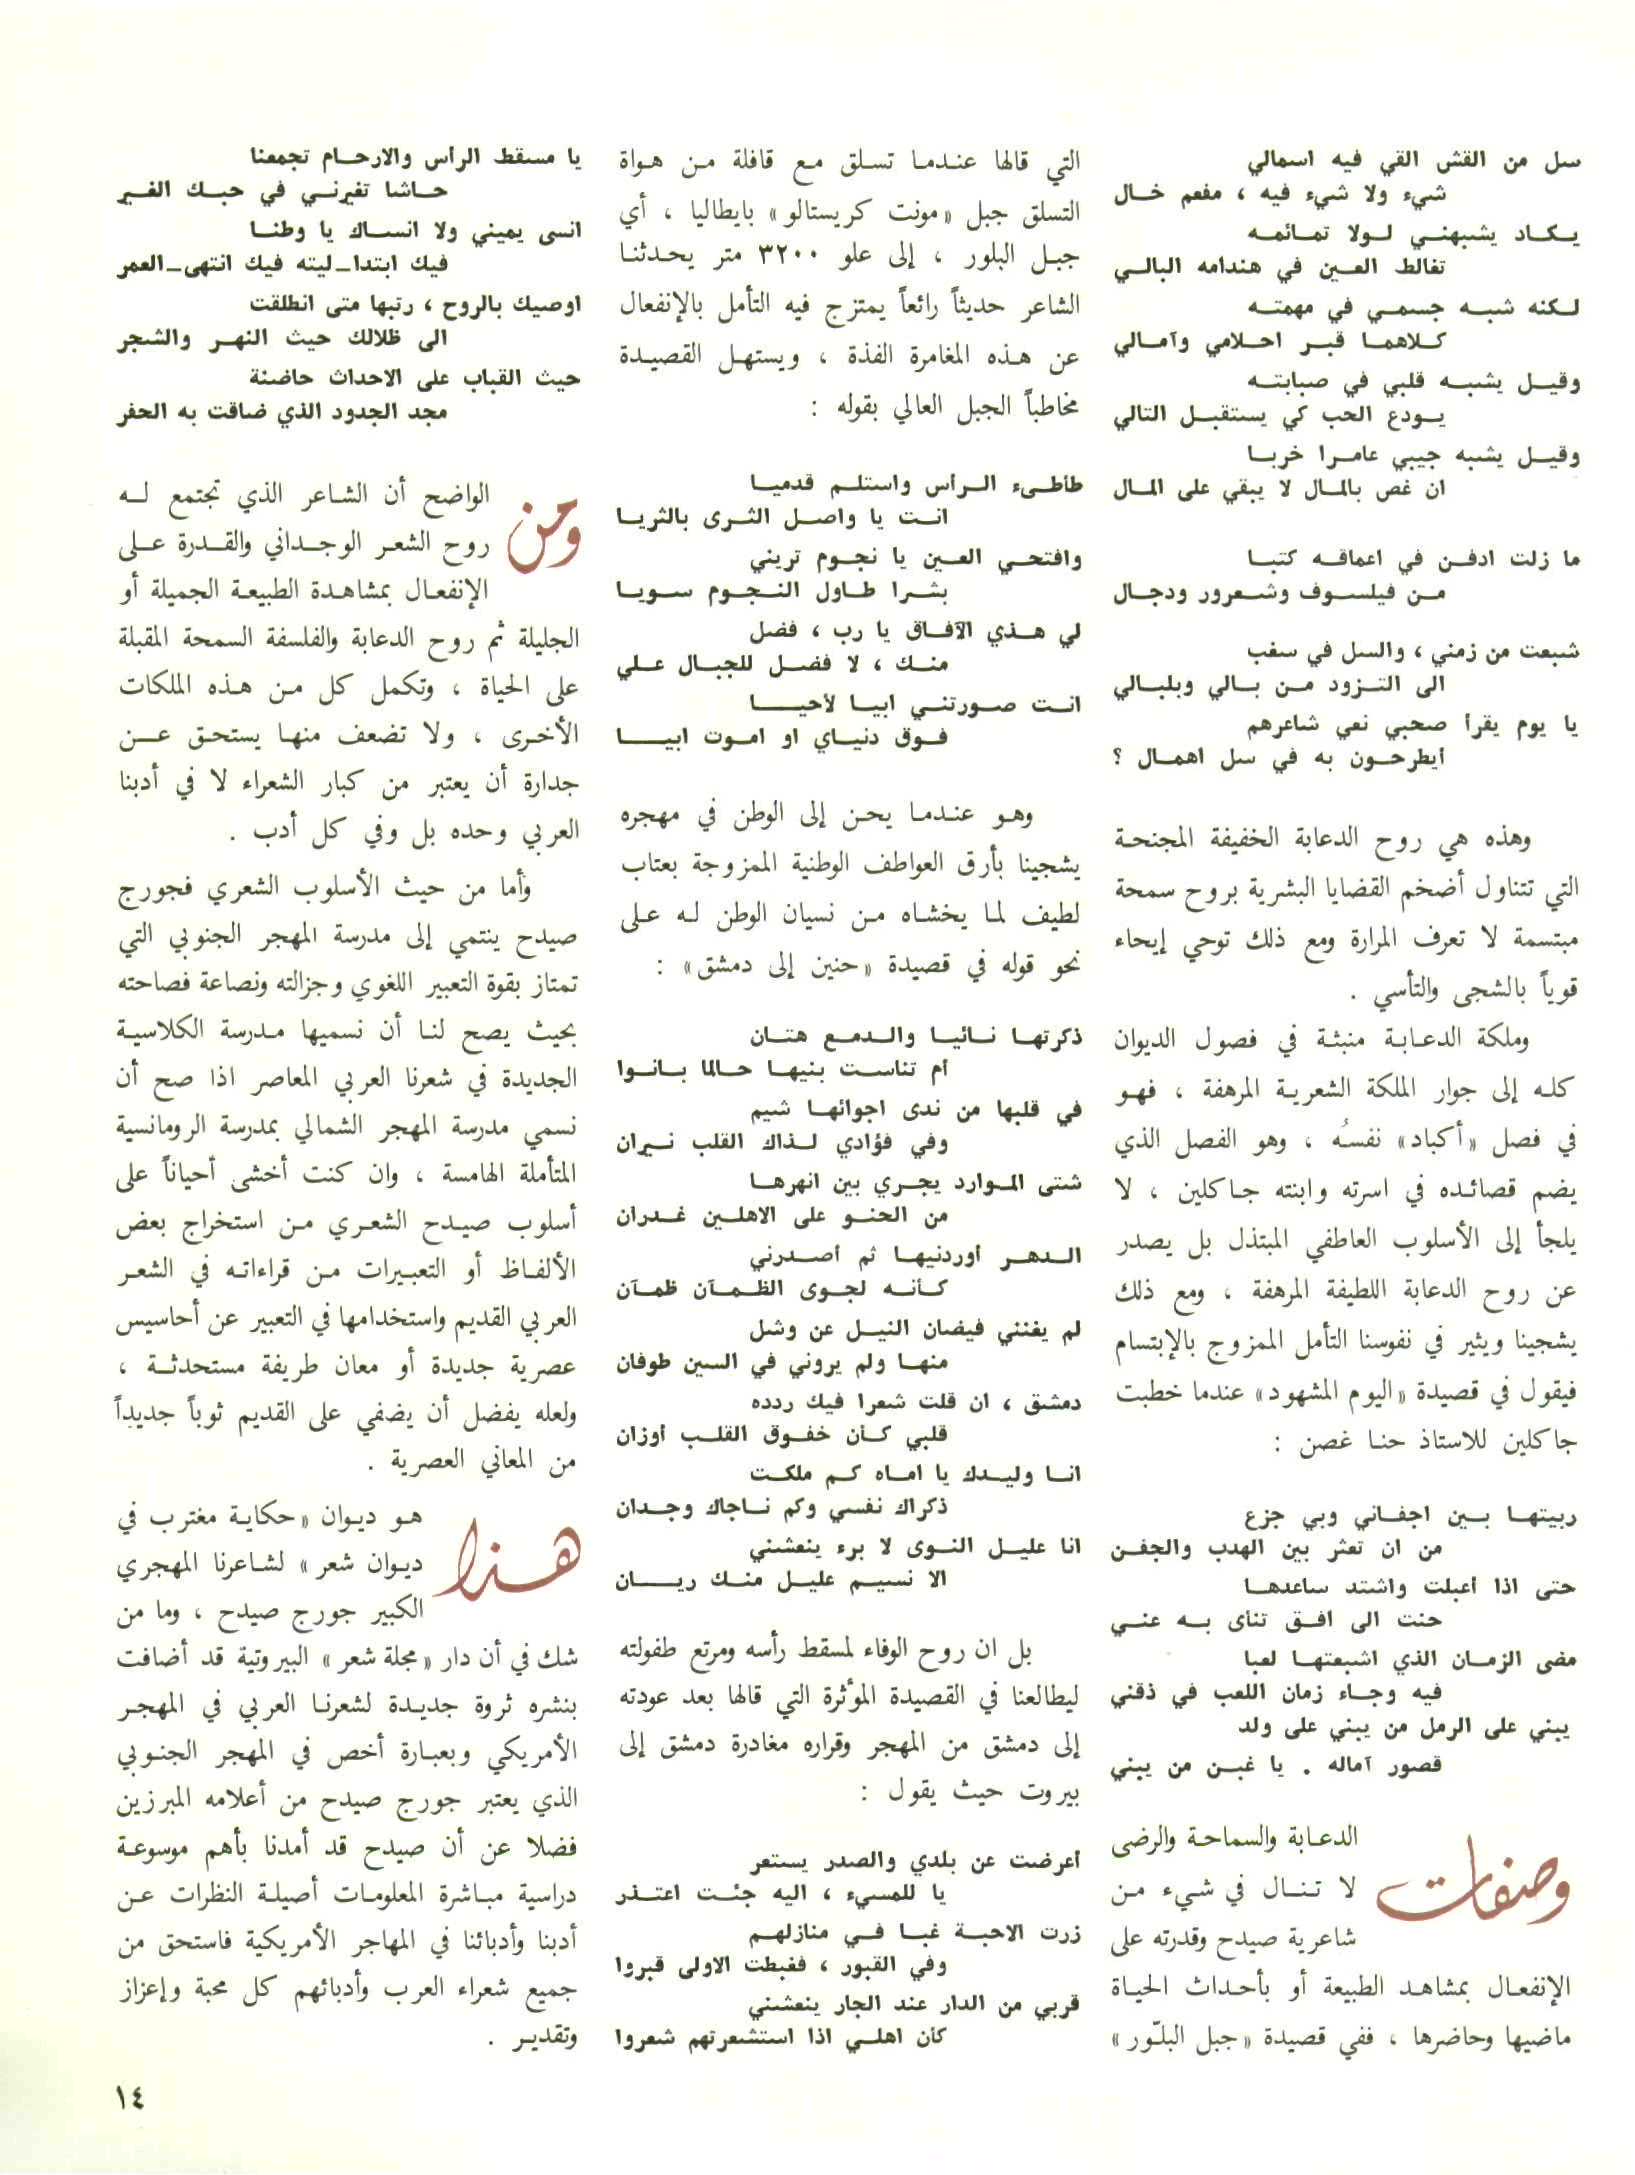 سل من القش القي فيه اسمالي
شيء ولا شيء فيه ، مفعم خال
يكاد يشبهني لولا تمائمه
تغالط العين في هندامه البالي
لكنه شبه جسمي في مهمته
كلاهما قبر احلامي وآمالي
وقيل يشبه قلبي في صبابته
يودع الحب كي يستقبل التالي
وقيل يشبه جيبي عامرا خربا
ان غص بالمال لا يبقي على المال
ما زلت ادفن في اعماقه كتبا
من فيلسوف وشعرور ودجال
شبعت من زمني ، والسل في سغب
الى التزود من بالي وبلبالي
يا يوم يقرأ صحبي نعي شاعرهم
أيطرحون به في سل اهمال ؟
وهذه هي روح الدعابة الخفيفة المجنحة
التي تتناول أضخم القضايا البشرية بروح سمحة
مبتسمة لا تعرف المرارة ومع ذلك توحي إيحاء
قوياً بالشجى والتأسي .
وملكة الدعابة منبثة في فصول الديوان
كله إلى جوار الملكة الشعرية المرهفة ، فهو
في فصل «أكباد» نفسه ، وهو الفصل الذي
يضم قصائده في اسرته وابنته جاكلين ، لا
يلجأ إلى الأسلوب العاطفي المبتذل بل يصدر
عن روح الدعابة اللطيفة المرهفة ، ومع ذلك
يشجينا ويثير في نفوسنا التأمل الممزوج بالإبتسام
فيقول في قصيدة «اليوم المشهود» عندما خطبت
جاكلين للاستاذ حنا غصن :
ربيتها بين اجفاني وبي جزع
من ان تعثر بين الهدب والجفن
حتى اذا أعبلت واشتد ساعدها
حنت الى افق تنأى به عني
مضى الزمان الذي اشبعتها لعبا
فيه وجاء زمان اللعب في ذقني
يبني على الرمل من يبني على ولد
قصور آماله . يا غبن من يبني
وصفات الدعابة والسماحة والرضى
لا تنال في شيء من
شاعرية صيدح وقدرته على
الإنفعال بمشاهد الطبيعة أو بأحداث الحياة
ماضيها وحاضرها ، ففي قصيدة «جبل البلّور»
التي قالها عندما تسلق مع قافلة من هواة
التسلق جبل «مونت كريستالو» بايطاليا ، أي
جبل البلور ، إلى علو ٣٢٠٠ متر يحدثنا
الشاعر حديثاً رائعاً يمتزج فيه التأمل بالإنفعال
عن هذه المغامرة الفذة ، ويستهل القصيدة
مخاطباً الجبل العالي بقوله :
طأطىء الرأس واستلم قدميا
انت يا واصل الثرى بالثريا
وافتحي العين يا نجوم تريني
بشرا طاول النجوم سويا
لي هذي الآفاق يا رب ، فضل
منك ، لا فضل للجبال علي
انت صورتني ابيا لأحيا
فوق دنياي او اموت ابيا
وهو عندما يحن إلى الوطن في مهجره
يشجينا بأرق العواطف الوطنية الممزوجة بعتاب
لطيف لما يخشاه من نسيان الوطن له على
نحو قوله في قصيدة «حنين إلى دمشق» :
ذكرتها نائيا والدمع هتان
أم تناست بنيها حالما بانوا
في قلبها من ندى اجوائها شيم
وفي فؤادي لذاك القلب نيران
شتى الموارد يجري بين انهرها
من الحنو على الاهلين غدران
الدهر أوردنيها ثم أصدرني
كأنه لجوى الظمآن ظمآن
لم يغنني فيضان النيل عن وشل
منها ولم يروني في السين طوفان
دمشق ، ان قلت شعرا فيك ردده
قلبي كأن خفوق القلب أوزان
انا وليدك يا اماه كم ملكت
ذكراك نفسي وكم ناجاك وجدان
انا عليل النوى لا برء ينعشني
الا نسيم عليل منك ريان
بل ان روح الوفاء لمسقط رأسه ومرتع طفولته
ليطالعنا في القصيدة المؤثرة التي قالها بعد عودته
إلى دمشق من المهجر وقراره مغادرة دمشق إلى
بيروت حيث يقول :
أعرضت عن بلدي والصدر يستعر
يا للمسيء ، اليه جئت اعتذر
زرت الاحبة غبا في منازلهم
وفي القبور ، فغبطت الاولى قبروا
قربي من الدار عند الجار ينعشني
كأن اهلي اذا استشعرتهم شعروا
يا مسقط الرأس والارحام تجمعنا
حاشا تغيرني في حبك الغير
انسى يميني ولا انساك يا وطنا
فيك ابتدا_ليته فيك انتهى_العمر
اوصيك بالروح ، رتبها متى انطلقت
الى ظلالك حيث النهر والشجر
حيث القباب على الاحداث حاضنة
مجد الجدود الذي ضاقت به الحفر
ومن الواضح أن الشاعر الذي تجتمع له
روح الشعر الوجداني والقدرة على
الإنفعال بمشاهدة الطبيعة الجميلة أو
الجليلة ثم روح الدعابة والفلسفة السمحة المقبلة
على الحياة ، وتكمل كل من هذه الملكات
الأخرى ، ولا تضعف منها يستحق عن
جدارة أن يعتبر من كبار الشعراء لا في أدبنا
العربي وحده بل وفي كل أدب .
وأما من حيث الأسلوب الشعري فجورج
صيدح ينتمي إلى مدرسة المهجر الجنوبي التي
تمتاز بقوة التعبير اللغوي وجزالته ونصاعة فصاحته
بحيث يصح لنا أن نسميها مدرسة الكلاسية
الجديدة في شعرنا العربي المعاصر اذا صح أن
نسمي مدرسة المهجر الشمالي بمدرسة الرومانسية
المتأملة الهامسة ، وان كنت أخشى أحياناً على
أسلوب صيدح الشعري من استخراج بعض
الألفاظ أو التعبيرات من قراءاته في الشعر
العربي القديم واستخدامها في التعبير عن أحاسيس
عصرية جديدة أو معان طريفة مستحدثة ،
ولعله يفضل أن يضفي على القديم ثوباً جديداً
من المعاني العصرية .
هذا هو ديوان «حكاية مغترب في
ديوان شعر» لشاعرنا المهجري
الكبير جورج صيدح ، وما من
شك في أن دار «مجلة شعر» البيروتية قد أضافت
بنشره ثروة جديدة لشعرنا العربي في المهجر
الأمريكي وبعبارة أخص في المهجر الجنوبي
الذي يعتبر جورج صيدح من أعلامه المبرزين
فضلا عن أن صيدح قد أمدنا بأهم موسوعة
دراسية مباشرة المعلومات أصيلة النظرات عن
أدبنا وأدبائنا في المهاجر الأمريكية فاستحق من
جميع شعراء العرب وأدبائهم كل محبة وإعزاز
وتقدير .
١٤